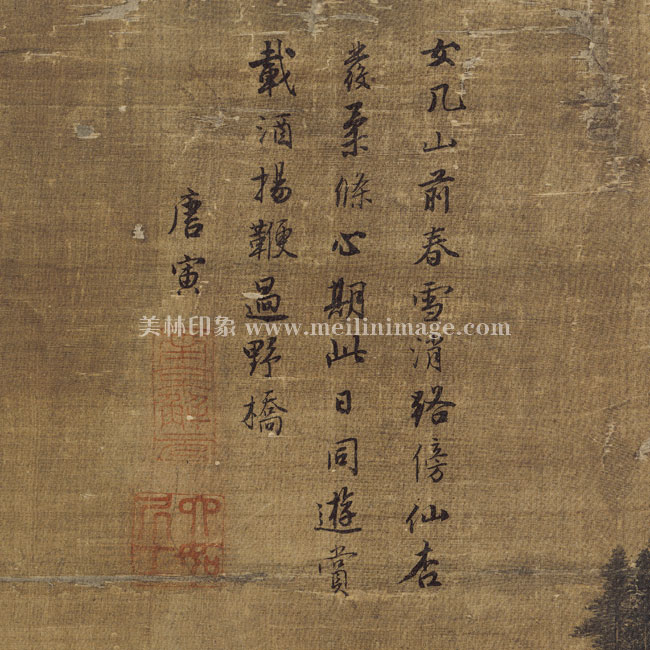 女几山前春雪消路傍仙杏
發柔條心期此日同遊賞
載酒揚鞭過野橋
唐寅
美林印象 www.meilinimage.com